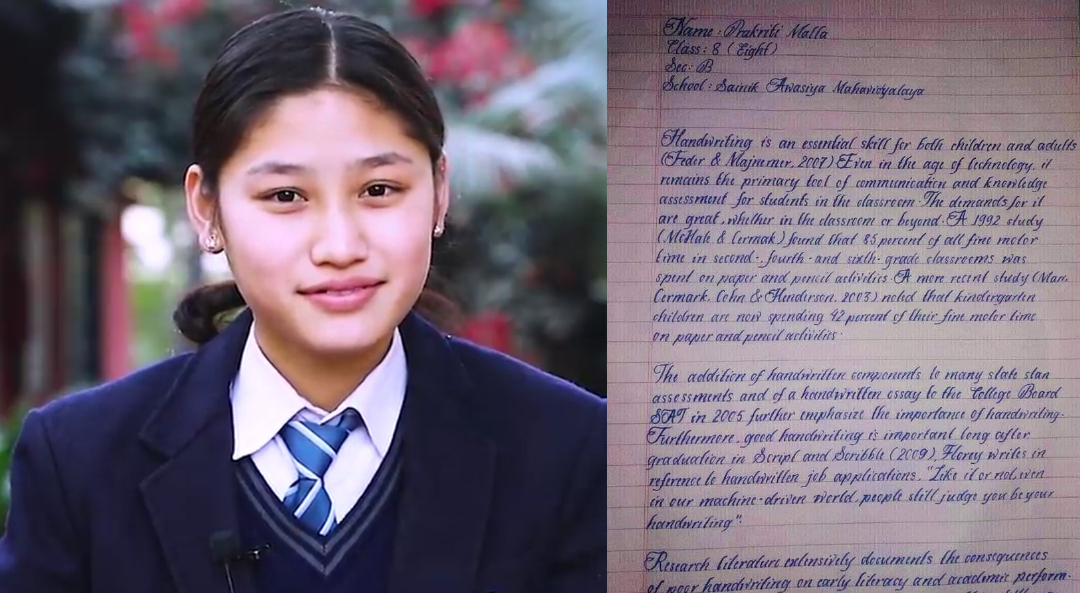 Name : Prakriti Malla
Class : 8 (Eight)
Sec : B
School : Sainik Awasiya Mahavidyalaya
Handwriting is an essential skill for both children and adults
(Feder & Majnemer, 2007) Even in the age of technology, it
remains the primary tool of communication and knowledge
assessment for students in the classroom. The demands for it
are great, whether in the classroom or beyond. A 1992 study
(McHale & Cermak) found that 85 percent of all fine motor
time in second-, fourth- and sixth- grade classrooms was
spent on paper and pencil activities. A more recent study (Marr,
Cermark, Cohn & Henderson, 2003) noted that kindergarten
children are now spending 42 percent of their fine motor time
on paper and pencil activities.
The addition of handwritten components to many state stan
assessments and of a handwritten essay to the College Board
SAT in 2005 further emphasize the importance of handwriting.
Furthermore, good handwriting is important long after
graduation in Script and Scribble (2009), Florey writes in
reference to handwritten job applications, "Like it or not, even
in our machine-driven world, people still judge you be your
handwriting".
Research literature extensively documents the consequences
of poor handwriting on early literacy and academic perform-